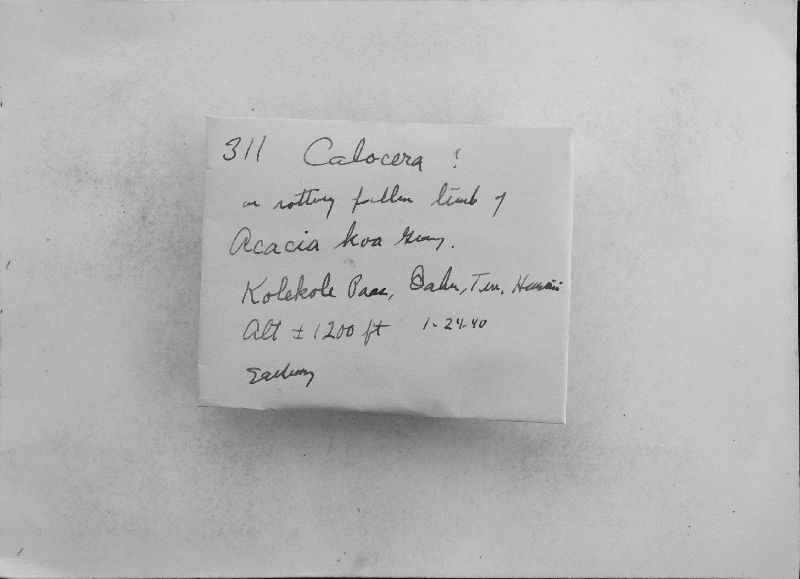 311 Calocera ?
on rotting fallen limb of
Acacia koa Gray.
Kolekole Pass, Oahu, Terr. Hawaii
Alt ± 1200 ft 1-24-40